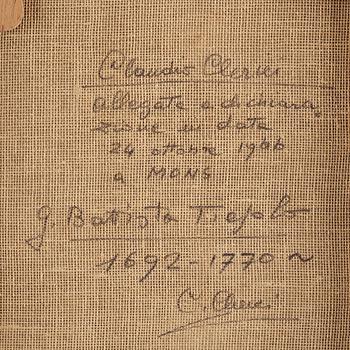 Claudio Clerici
allegata a dichiara
zione in data
24 ottobre 1966
a MONS
G. Battista Tiepolo
1692-1770 ~
C. Clerici